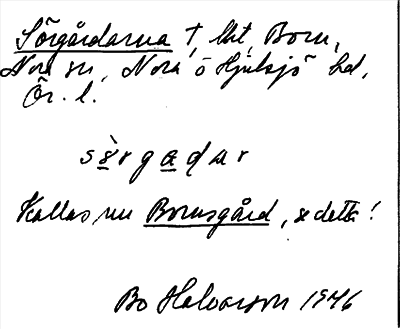 Sörgårdarna †, lht, Born,
Nora sn, Nora o Hjulsjö hd,
Ör. l.
sørgaḍar
Kallas nu Bornsgård, se detta!
Bo Halvarson 1946